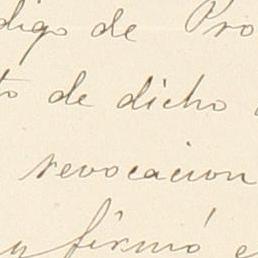 digo de Pro
to de dicho
revocacion
y firmó e